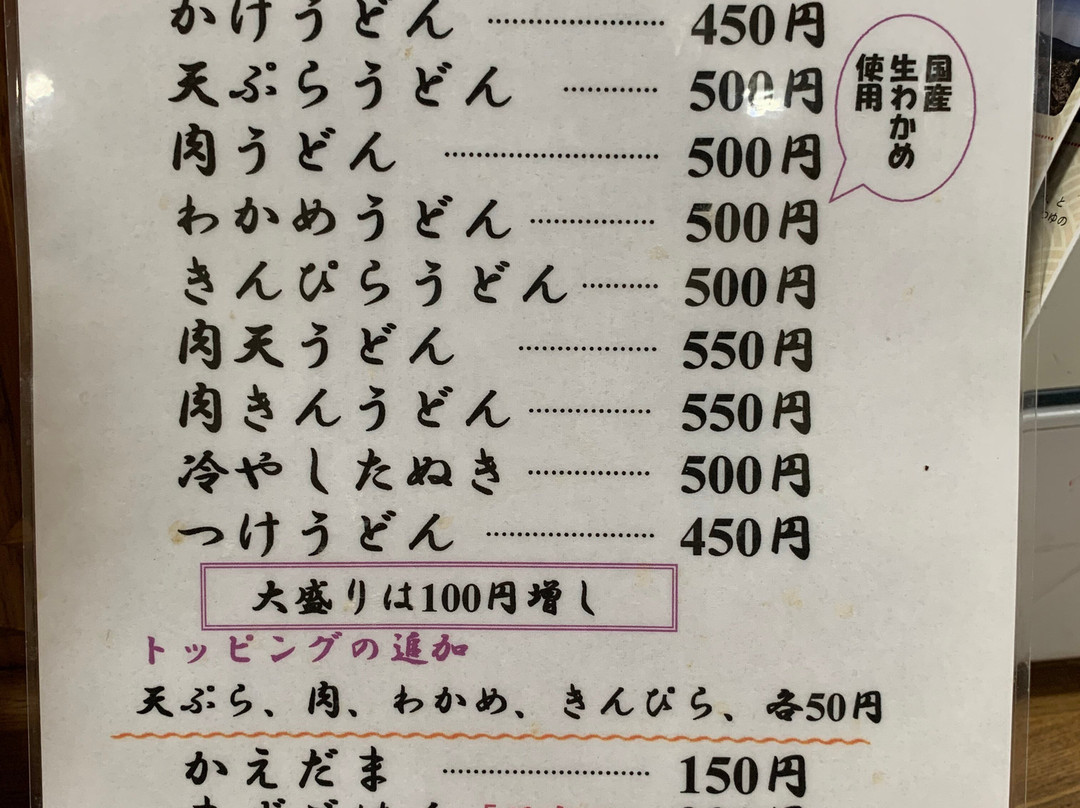 かけうどん ………………… 450円
天ぷらうどん ………… 500円
国産
生わかめ
使用
肉うどん ……………………… 500円
わかめうどん …………… 500円
きんぴらうどん ……… 500円
肉天うどん ……………… 550円
肉きんうどん …………… 550円
冷やしたぬき …………… 500円
つけうどん ………………… 450円
大盛りは100円増し
トッピングの追加
天ぷら、肉、わかめ、きんぴら、各50円
かえだま ……………………… 150円